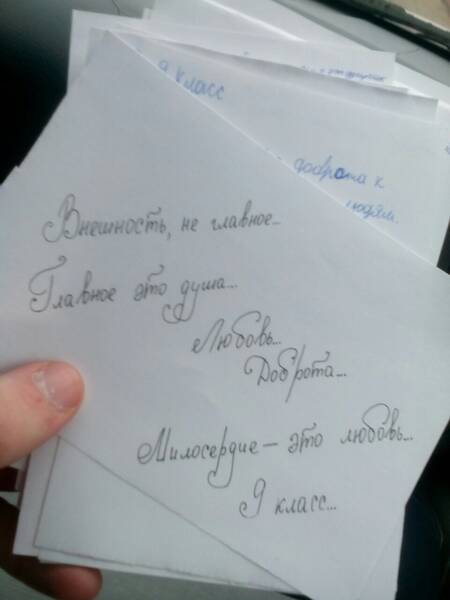 9 класс
доброта к
людям.
Внешность, не главное...
Главное это душа...
Любовь...
Доброта...
Милосердие - это любовь...
9 класс...